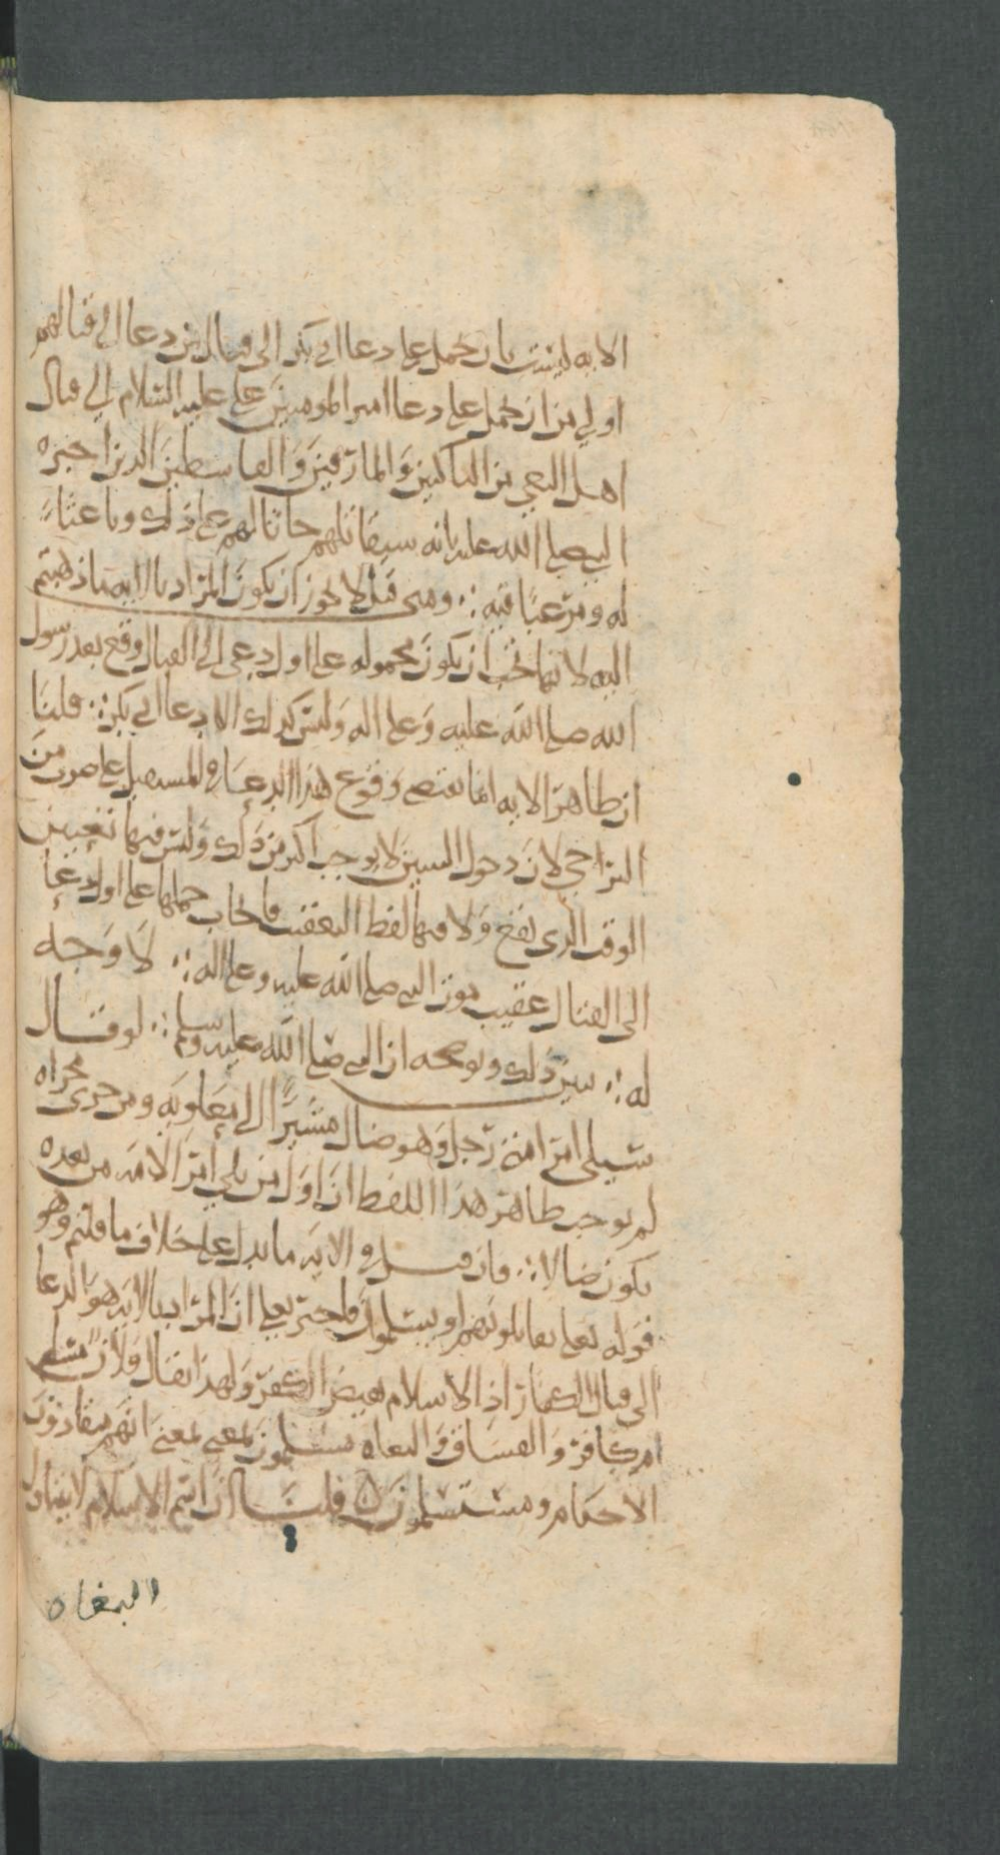 الايه ليست بان تحمل على دعا ابى بكر الى قتال من دعا الى قتالهم
اولى من ان تحمل على دعا امير المومنين على عليه السلام الى قتال
اهل البغى من الناكثين والمارقين والقاسطين الذين اخبره
النبى صلى الله عليه بانه سيقاتلهم حاثا لهم على ذلك وباعثا
له ومرغبا فيه ∴ ومتى قيل لا يجوز ان يكون المراد بالايه ما ذهبتم
اليه لانها يجب ان يكون محموله على اول دعى الى القتال وقع بعد رسول
الله صلى الله عليه وعلى اله وليس كذلك الا دعا ابى بكر ∴ قلنا
ان ظاهر الايه انما يقتضى وقوع هذا الدعا فى المستقبل على ضرب من
التراخى لان دخول السين لا يوجب اكثر من ذلك وليس فيها تعيين
الوقت الذى يقع ولا فيها لفظ التعقيب فايجاب حملها على اول دعا
الى القتال عقيب موت النبى صلى الله عليه وعلى اله ∴ لا وجه
له ∴ يبين ذلك ويوضحه ان النبى صلى الله عليه وسلم ∴ لو قال
سيلى امر امتى رجل وهو ضال مشيرا الى معاويه ومن جرى مجراه
لم يوجب ظاهر هذا اللفظ ان اول من يلى امر الامه من بعده
يكون ضالا ∴ فان قيل فى الايه ما يدل على خلاف ما قلتم وهو
قوله تعلى تقاتلونهم او يسلمون فاخبر تعلى ان المراد بالايه هو الدعا
الى قتال الكفار اذ الاسلام نقيض الكفر ولهذا يقال فلان مسلم
ام كافر والفساق والبغاه مسلمون بمعنى انهم منقادون
الاحكام ومستسلمون قلنا ان اسم الاسلام لا يتناول
البغاه